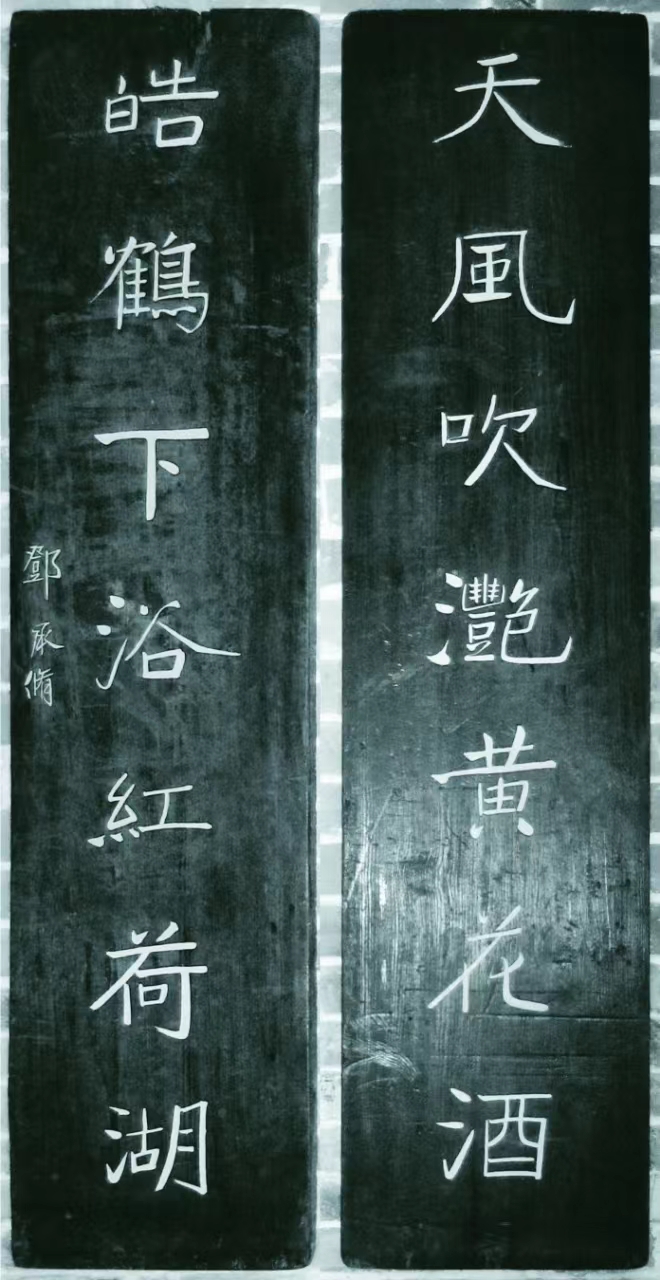 天風吹灧黄花酒
皓鶴下浴紅荷湖
鄧承脩